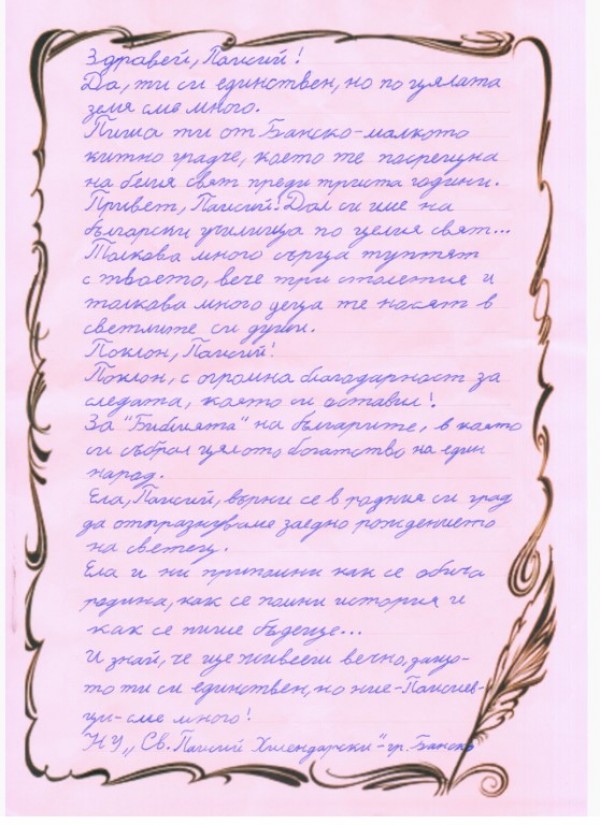 Здравей, Паисий!
Да, ти си единствен, но по цялата
земя сме много.
Пиша ти от Банско-малкото
китно градче, което те посрещна
на белия свят преди триста години.
Привет, Паисий! Дал си име на
български училища по целия свят...
Толкова много сърца туптят
с твоето, вече три столетия и
толкова много деца те носят в
светлите си души.
Поклон, Паисий!
Поклон, с огромна благодарност за
следата, която си оставил!
За "Библията" на българите, в която
си събрал цялото богатство на един
народ.
Ела, Паисий, върни се в родния си град
да отпразнуваме заедно рождението
на светец.
Ела и ни припомни как се обича
родина, как се помни история и
как се пише бъдеще...
И знай, че ще живееш вечно, защо-
то ти си единствен, но ние-Паисиев-
ци-сме много!
НУ „Св. Паисий Хилендарски"-гр. Банско